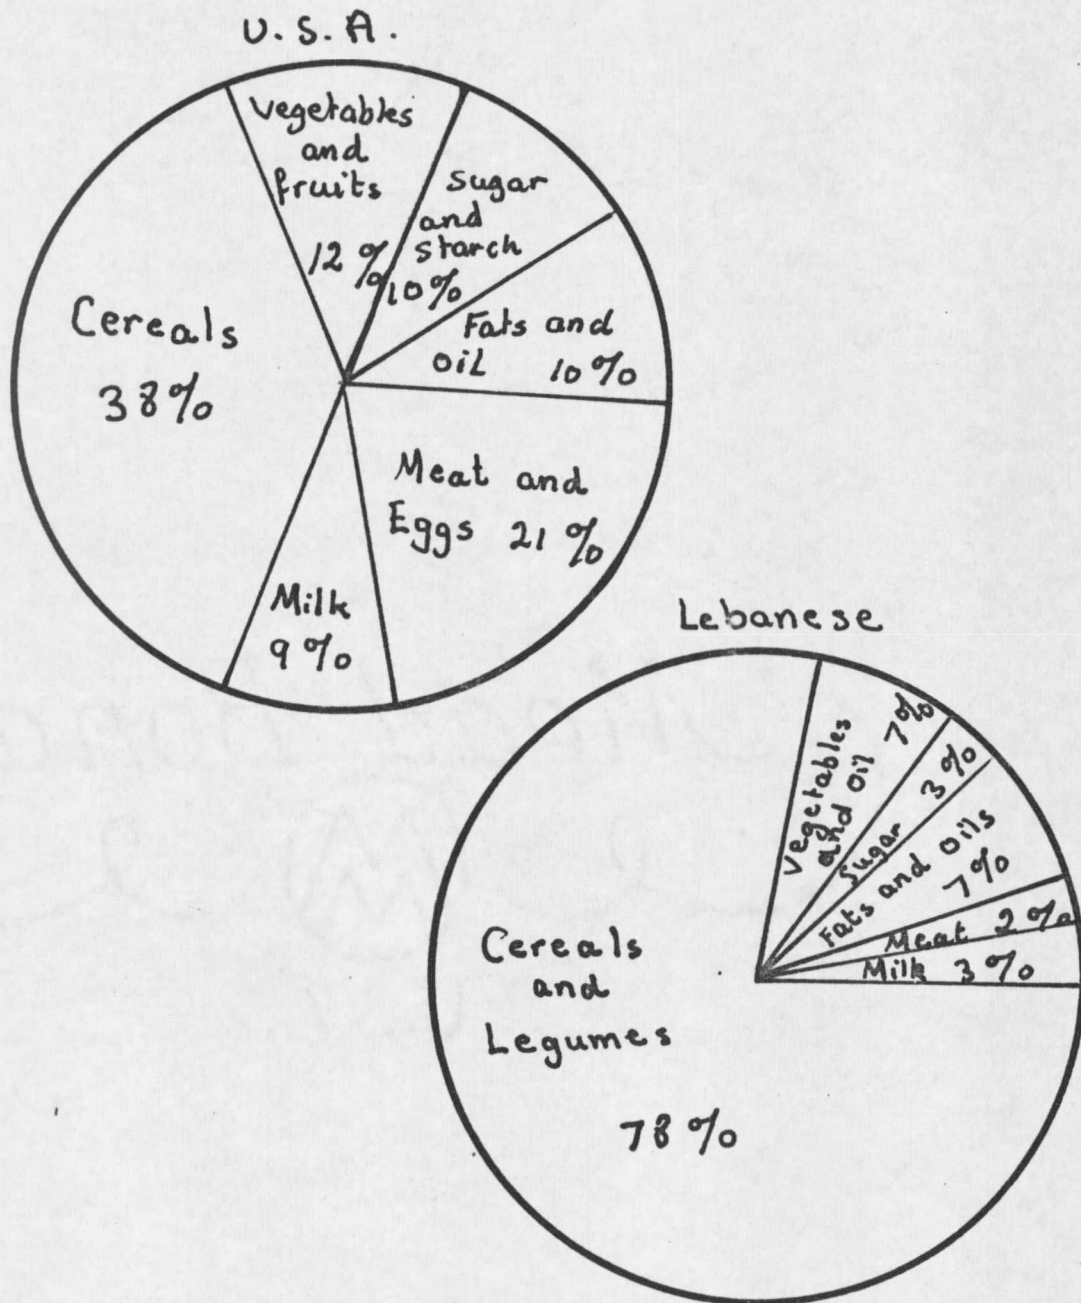 U.S.A.
Vegetables
and
fruits
12 %
Sugar
and
Starch
10%
Fats and
oil 10%
Cereals
38%
Meat and
Eggs 21 %
Milk
9 %
Lebanese
Vegetables
and oil
7%
Sugar 3%
Fats and oils
7%
Meat 2%
Milk 3%
Cereals
and
Legumes
78 %